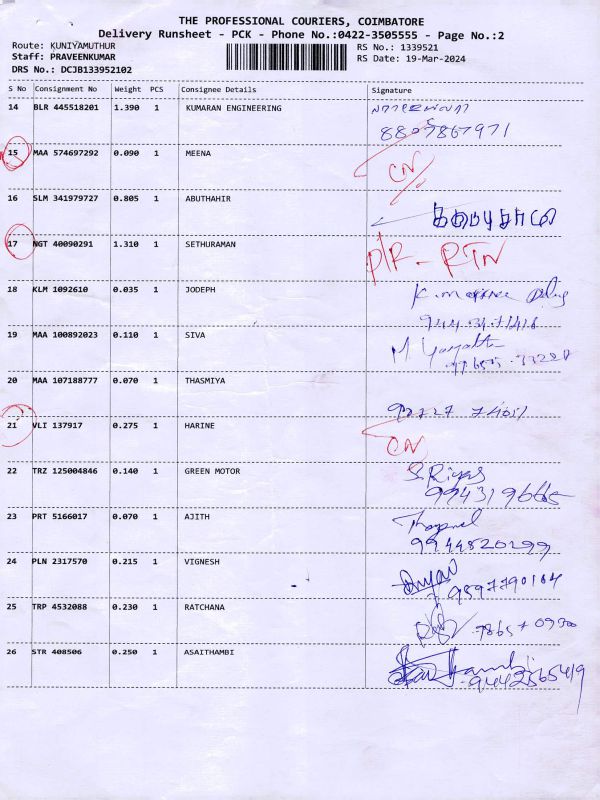 THE PROFESSIONAL COURIERS, COIMBATORE
Delivery Runsheet - PCK - Phone No.:0422-3505555 - Page No.:2
Route: KUNIYAMUTHUR RS No.: 1339521
Staff: PRAVEENKUMAR RS Date: 19-Mar-2024
DRS No.: DCJB133952102
S No Consignment No Weight PCS Consignee Details Signature
14 BLR 445518201 1.390 1 KUMARAN ENGINEERING
8807867971
15 MAA 574697292 0.090 1 MEENA CN
16 SLM 341979727 0.805 1 ABUTHAHIR
17 NGT 40090291 1.310 1 SETHURAMAN P/R - RTN
18 KLM 1092610 0.035 1 JODEPH
19 MAA 100892023 0.110 1 SIVA
20 MAA 107188777 0.070 1 THASMIYA
21 VLI 137917 0.275 1 HARINE CN
22 TRZ 125004846 0.140 1 GREEN MOTOR S. Riyas
9943196665
23 PRT 5166017 0.070 1 AJITH
9944820299
24 PLN 2317570 0.215 1 VIGNESH
9597790164
25 TRP 4532088 0.230 1 RATCHANA
26 STR 408506 0.250 1 ASAITHAMBI
9442565419